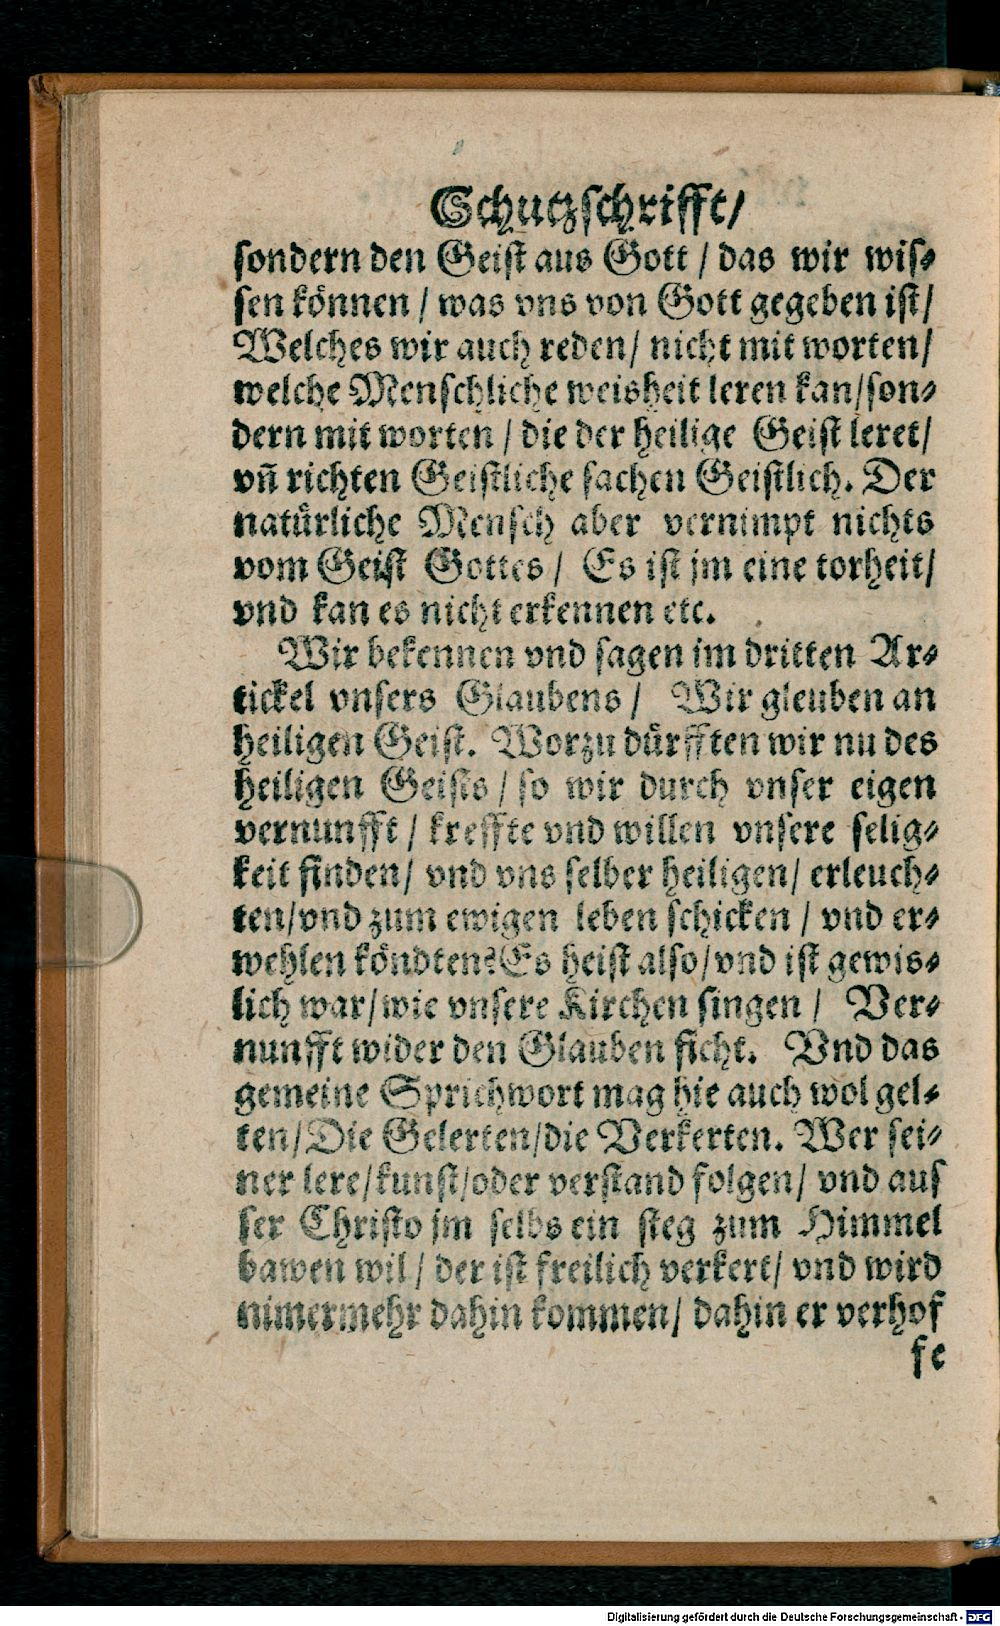 Schutzschrifft/
sondern den Geist aus Gott / das wir wis⸗
sen können / was vns von Gott gegeben ist/
Welches wir auch reden/ nicht mit worten/
welche Menschliche weisheit leren kan/son⸗
dern mit worten / die der heilige Geist leret/
vn̄ richten Geistliche sachen Geistlich. Der
natürliche Mensch aber vernimpt nichts
vom Geist Gottes / Es ist jm eine torheit/
vnd kan es nicht erkennen etc.
Wir bekennen vnd sagen im dritten Ar⸗
tickel vnsers Glaubens / Wir gleuben an
heiligen Geist. Worzu dürfften wir nu des
heiligen Geists / so wir durch vnser eigen
vernunfft / kreffte vnd willen vnsere selig⸗
keit finden/ vnd vns selber heiligen/ erleuch⸗
ten/vnd zum ewigen leben schicken / vnd er⸗
wehlen köndten? Es heist also/vnd ist gewis⸗
lich war/wie vnsere Kirchen singen / Ver⸗
nunfft wider den Glauben ficht. Vnd das
gemeine Sprichwort mag hie auch wol gel⸗
ten/Die Gelerten/die Verkerten. Wer sei⸗
ner lere/kunst/oder verstand folgen/ vnd aus
ser Christo jm selbs ein steg zum Himmel
bawen wil / der ist freilich verkert/ vnd wird
nimermehr dahin kommen/ dahin er verhof
fe
Digitalisierung gefördert durch die Deutsche Forschungsgemeinschaft - DFG